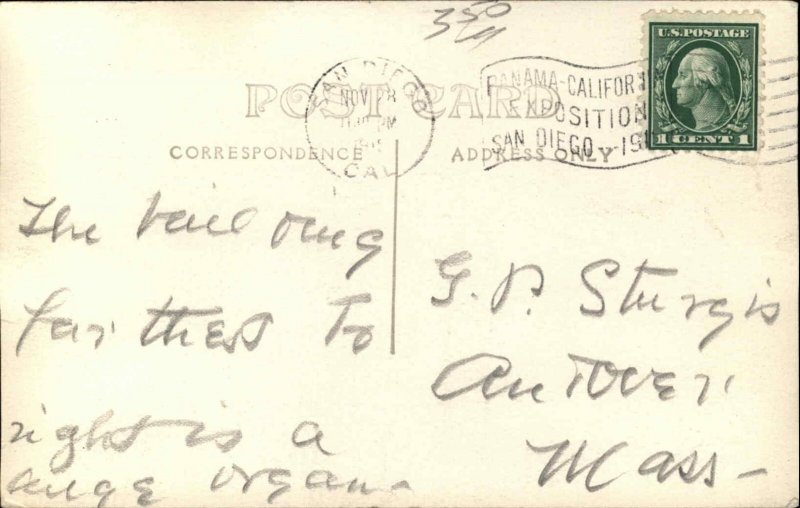 350
U.S. POSTAGE
1 CENT 1
SAN DIEGO
NOV
PM
CAL
PANAMA-CALIFOR
EXPOSITION
SAN DIEGO
POST CARD
CORRESPONDENCE
ADDRESS ONLY
The building
farthest to
right is a
organ.
G. P. Sturgis
Andover.
Mass-